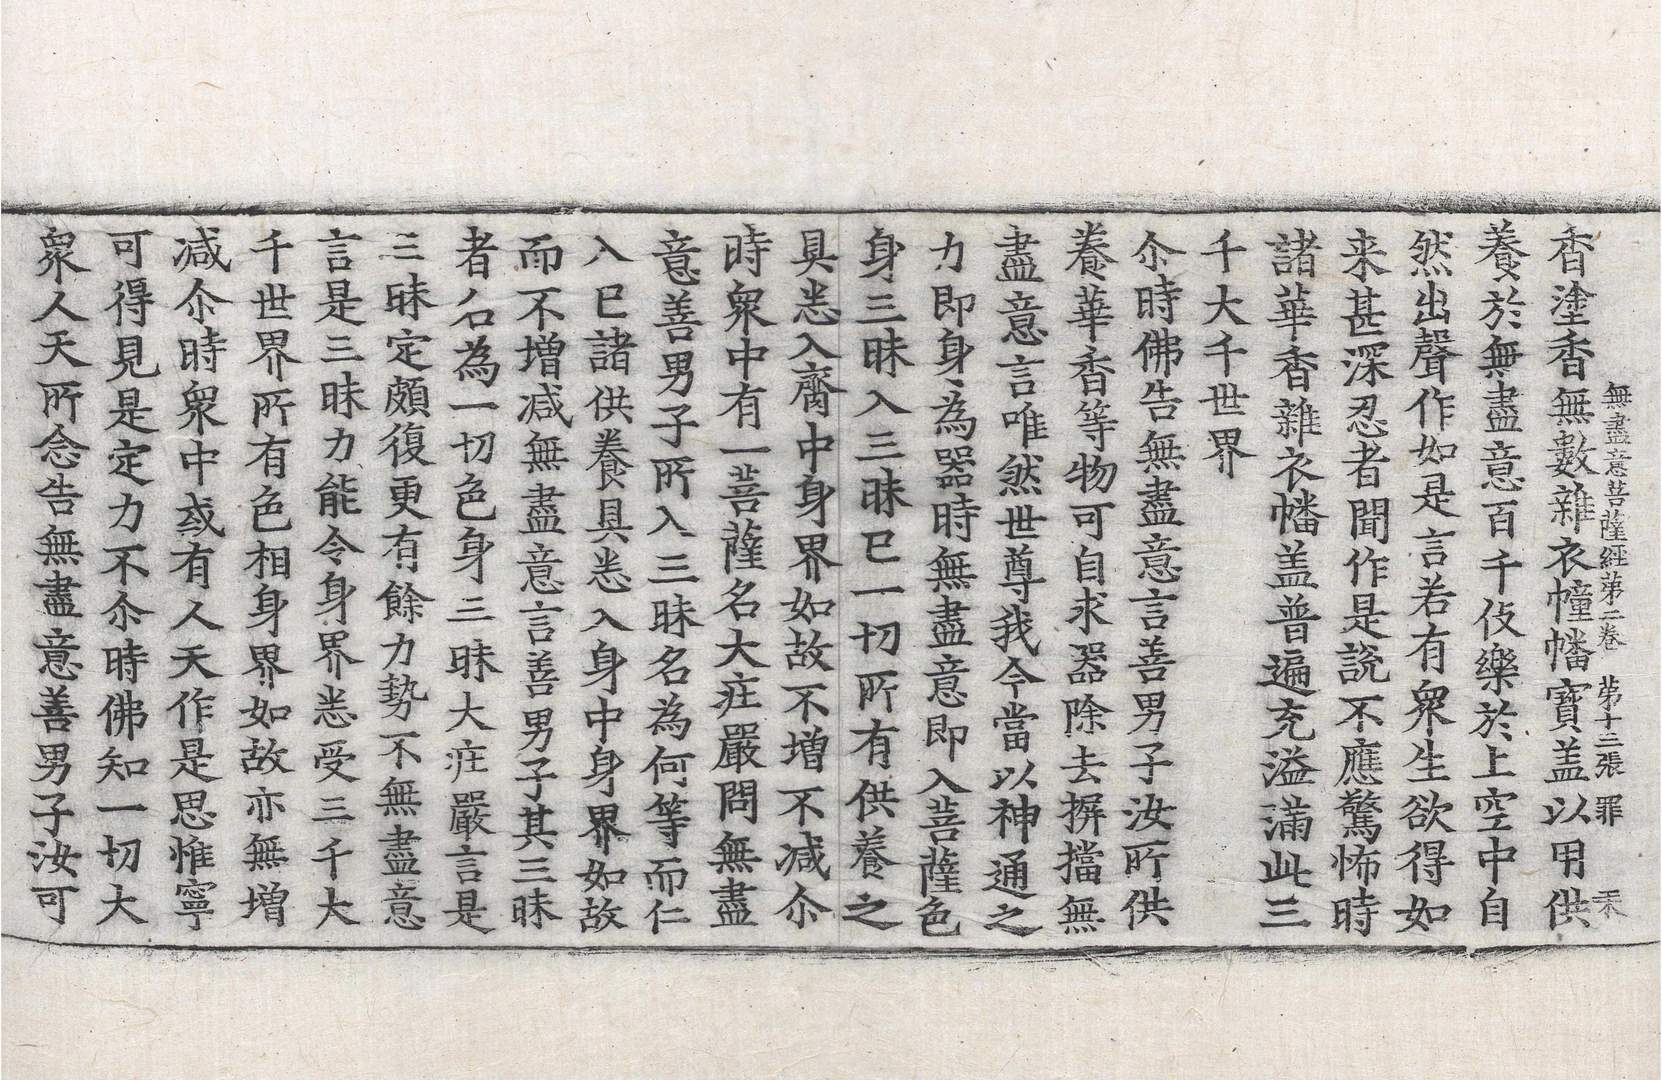 無盡意菩薩經第二卷 第十三張 罪
香塗香無數雜衣幢幡寶盖以用供
養於無盡意百千伎樂於上空中自
然出聲作如是言若有衆生欲得如
来甚深忍者聞作是說不應驚怖時
諸華香雜衣幡盖普遍充溢滿此三
千大千世界
尒時佛告無盡意言善男子汝所供
養華香等物可自求器除去摒擋無
盡意言唯然世尊我今當以神通之
力即身為器時無盡意即入菩薩色
身三昧入三昧已一切所有供養之
具悉入齊中身界如故不增不减尒
時衆中有一菩薩名大庄嚴問無盡
意善男子所入三昧名為何等而仁
入已諸供養具悉入身中身界如故
而不增减無盡意言善男子其三昧
者名為一切色身三昧大庄嚴言是
三昧定頗復更有餘力勢不無盡意
言是三昧力能令身界悉受三千大
千世界所有色相身界如故亦無增
减尒時衆中或有人天作是思惟寧
可得見是定力不尒時佛知一切大
衆人天所念告無盡意善男子汝可